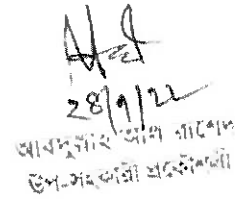 28/9/22
আবদুল্লাহ আল রাশেদ
উপ-সহকারী প্রকৌশলী